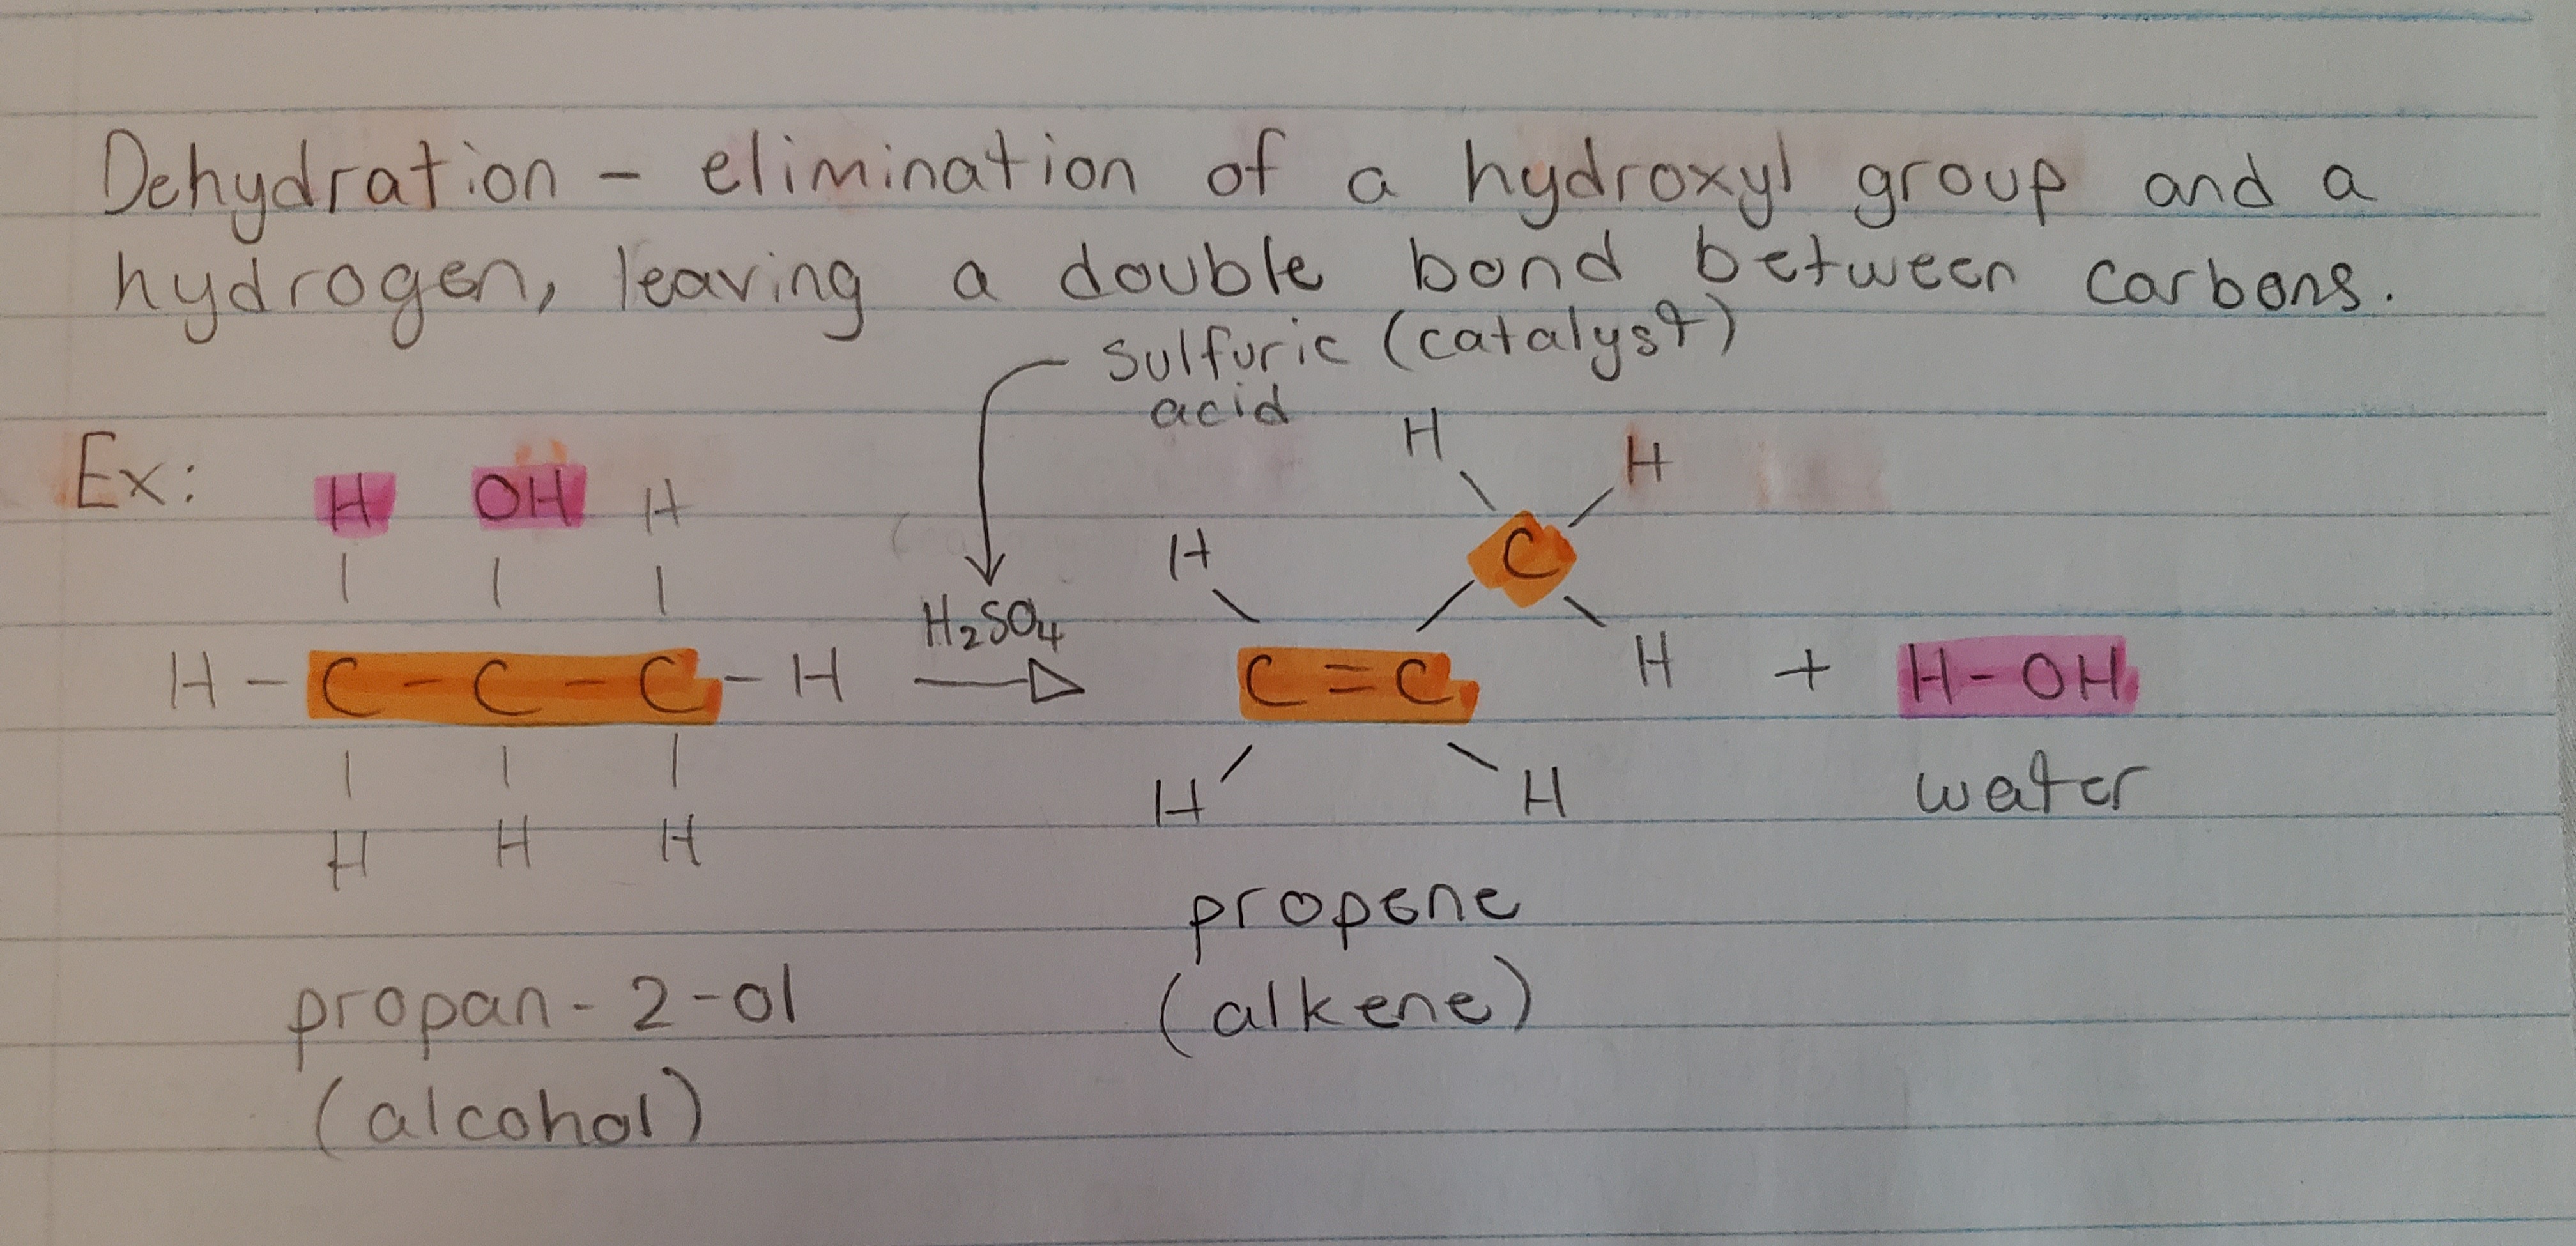 Dehydration - elimination of a hydroxyl group and a
hydrogen, leaving a double bond between carbons.
sulfuric (catalyst)
acid
Ex:
H OH H
H-C-C-C-H
H H H
H₂SO₄
H H
H C
C=C H
H H
+ H-OH
water
propene
(alkene)
propan-2-ol
(alcohol)